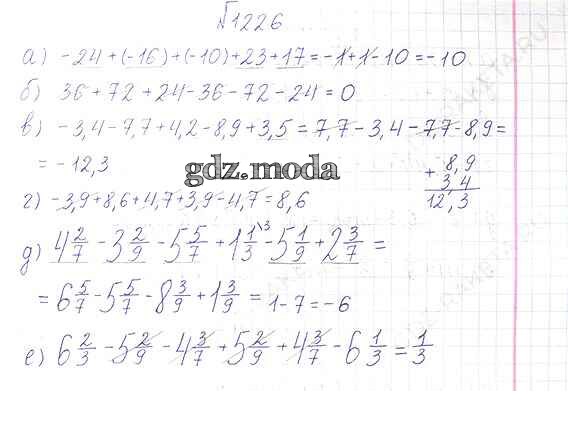 √1226
а) -24+(-16)+(-10)+23+17=-1+1-10=-10
б) 36+72+24-36-72-24=0
в) -3,4-7,7+4,2-8,9+3,5=7,7-3,4-7,7-8,9=
=-12,3
+ 8,9
3,4
12,3
gdz.moda
г) -3,9+8,6+4,7+3,9-4,7=8,6
д) 4 2/7 - 3 2/9 - 5 5/7 + 1 1/3 \3 - 5 1/9 + 2 3/7 =
= 6 5/7 - 5 5/7 - 8 3/9 + 1 3/9 = 1-7=-6
е) 6 2/3 - 5 2/9 - 4 3/7 + 5 2/9 + 4 3/7 - 6 1/3 = 1/3